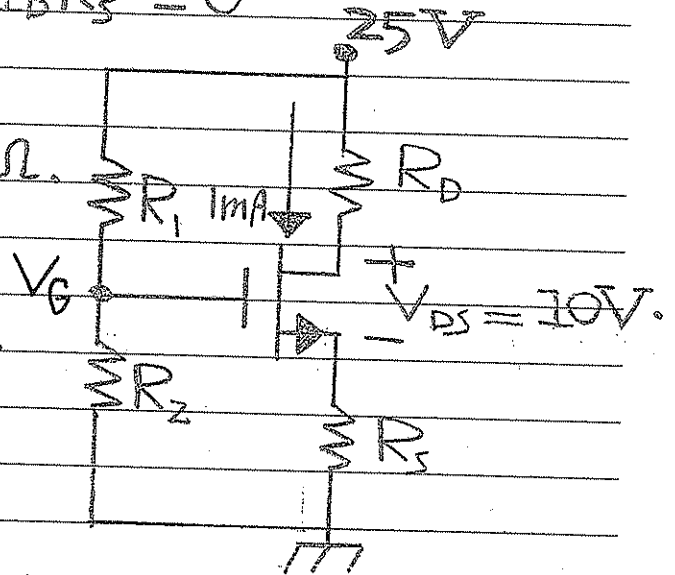 25V
Ω.
R1
1mA
RD
VG
+
VDS = 10V.
-
R2
RS